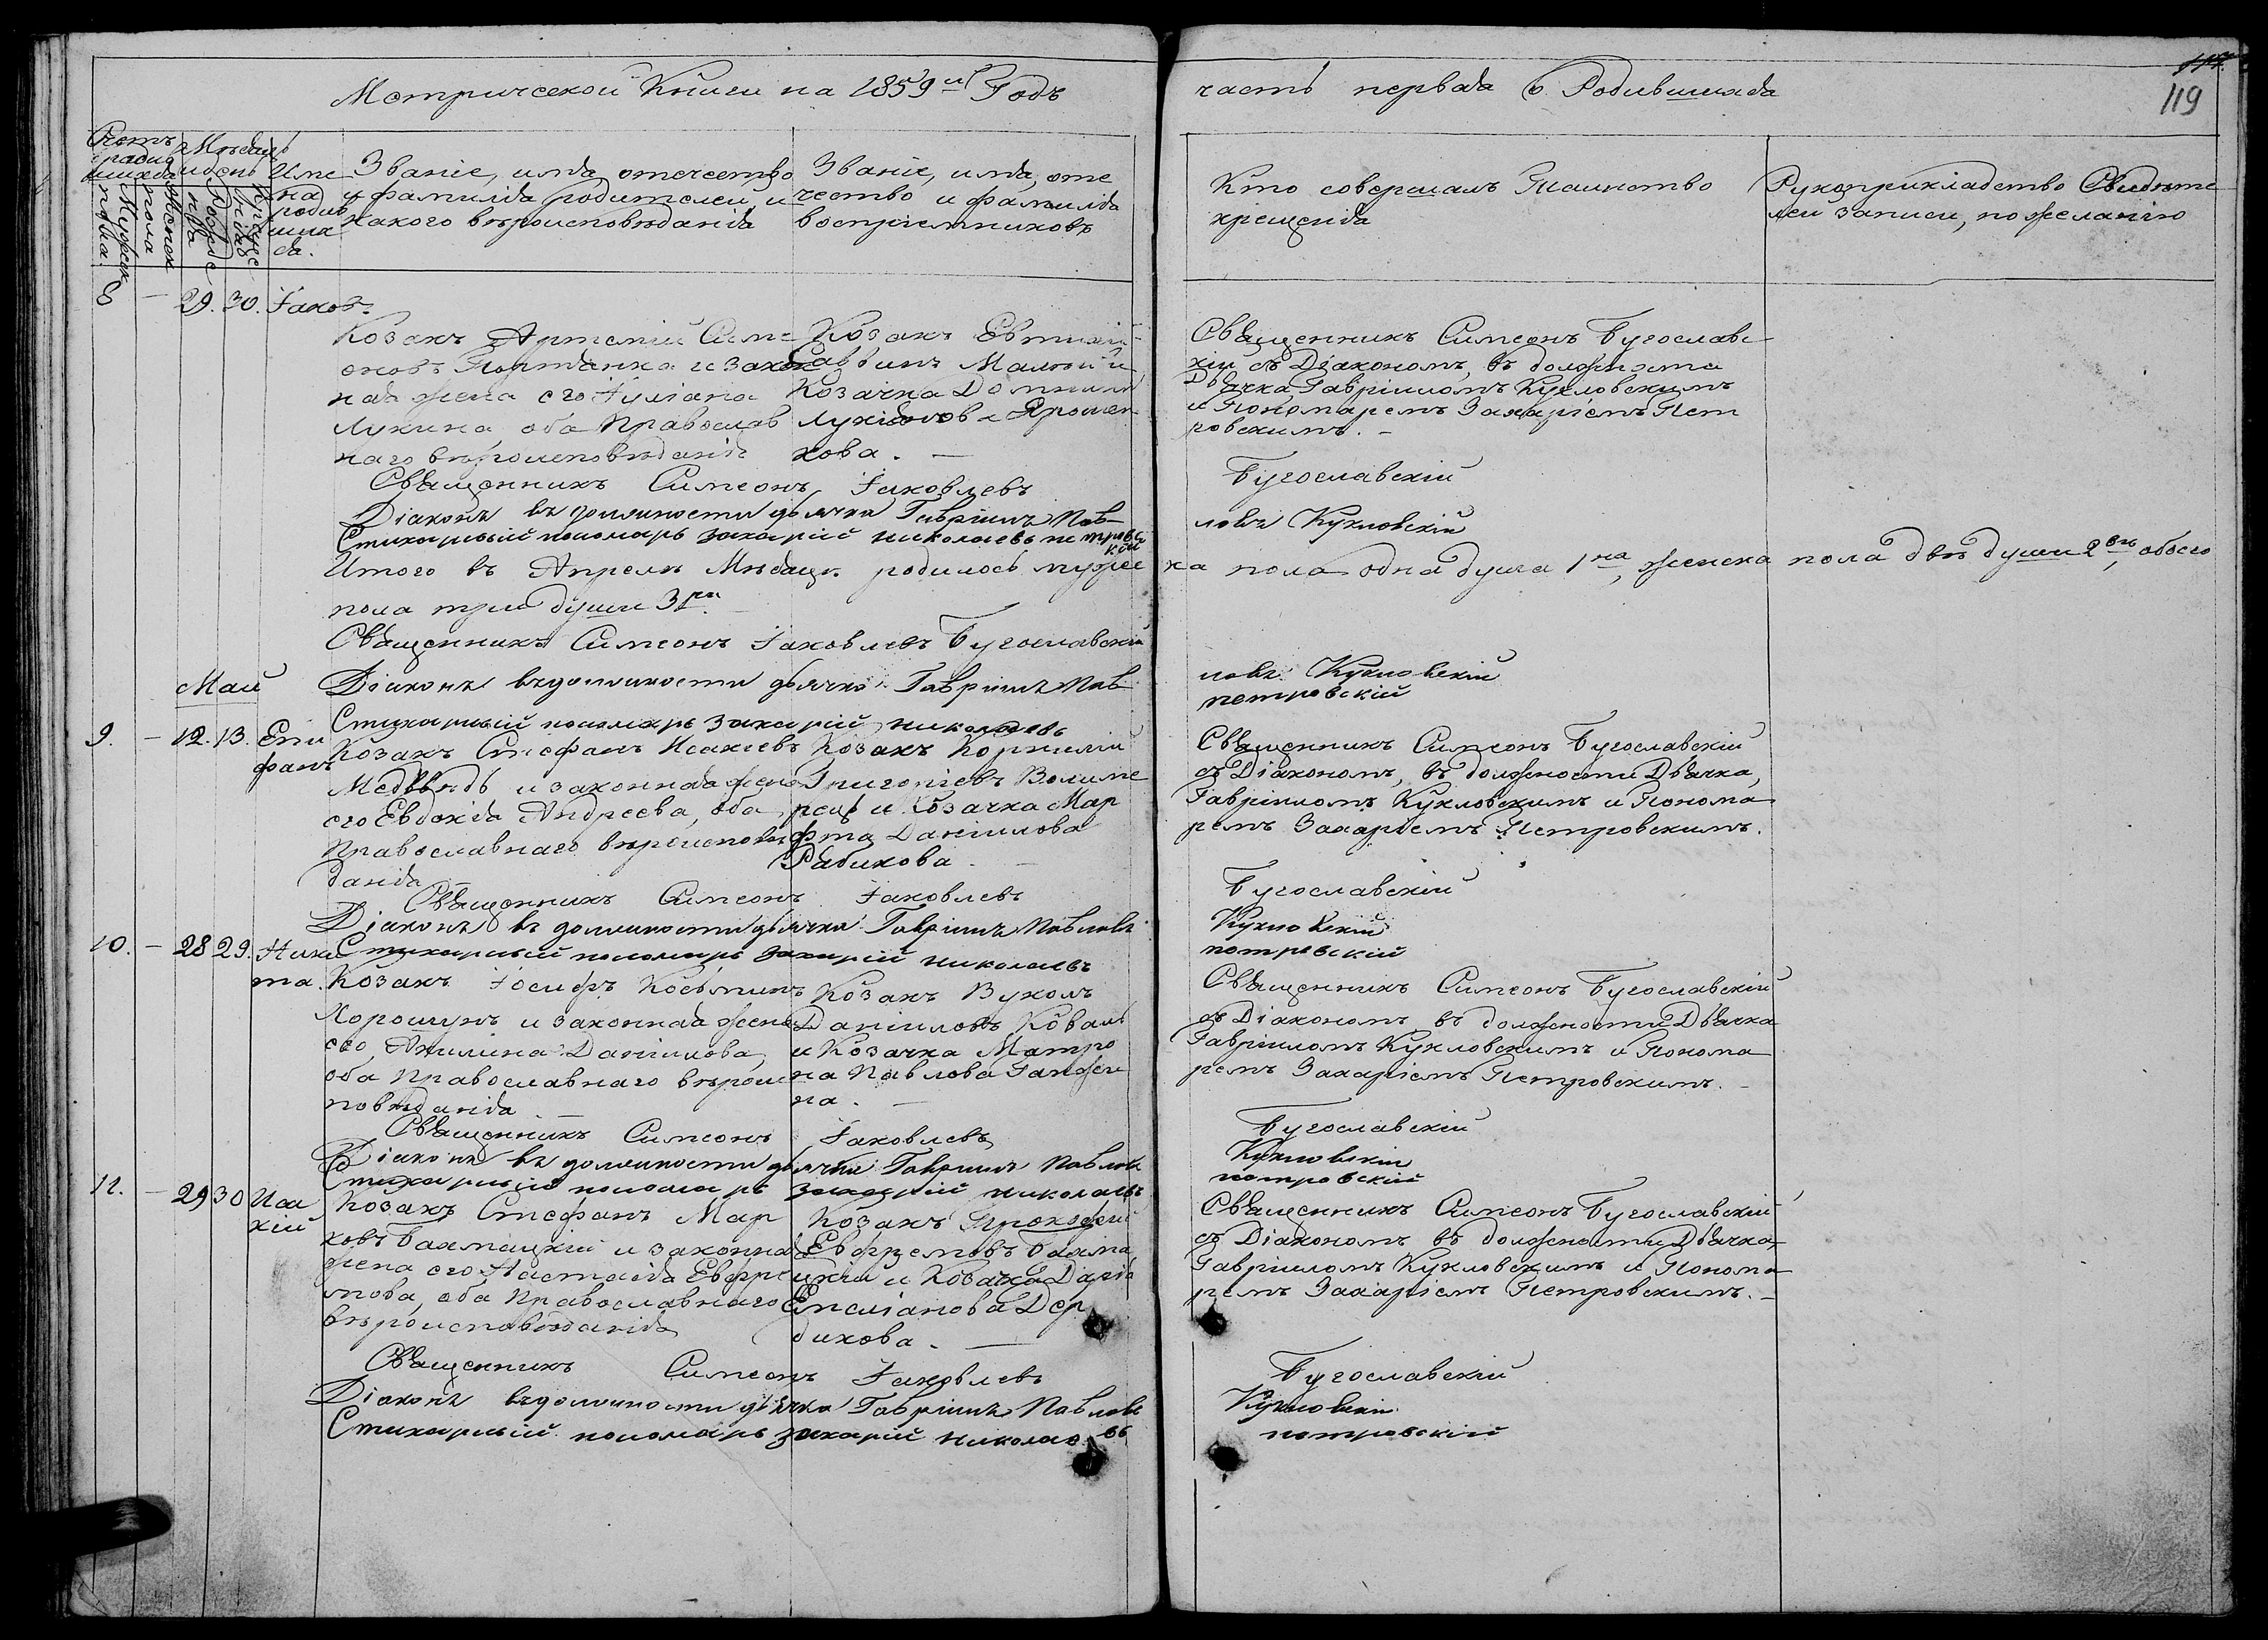 Метрической Книги на 1859й Годъ
часть первая о Родившихся
117.
119
Счетъ
родив
шихся
Мужеск
пола.
Женск
пола
Мѣсяцъ
и день
Рожде
нія
Креще
нія
Име
на
родив
ших
ся.
Званіе, имя, отечество
и фамилія родителей, и
какого вѣроисповѣданія
Званіе, имя, оте
чество и фамилія
воспріемниковъ
Кто совершалъ Таинство
крещенія
Рукоприкладство Свидѣте
лей записи, по желанію
8 – 29. 30. Іаковъ.
Козакъ Артемій Симе
оновъ Портянка и закон
ная жена его Іуліана
Лукина, оба Православ
наго вѣроисповѣданія
Козакъ Евтихій
Саввинъ Малый и
Козачка Домникі
Лукіанова Ярошен
кова. –
Священникъ Симеонъ Бугославс
кій съ Діакономъ, въ должности
Дьячка Гавріиломъ Кукловскимъ
и Пономаремъ Захаріемъ Пет
ровскимъ. –
Священникъ Симеонъ Іаковлевъ Бугославскій
Діаконъ въ должности дьячка Гавріилъ Пав
ловъ Кукловскій
Стихарный пономарь Захарій Николаевъ Петровс
кій
Итого въ Апрелѣ Мѣсяцѣ родилось мужес
ка пола одна душа 1на, женска пола двѣ души 2вѣ, обоего
пола три души 3ри
Священникъ Симеонъ Іаковлевъ Бугославскій
Май
Діаконъ въ должности дьячка Гавріилъ Пав
ловъ Кукловскій
Стихарный пономарь Захарій Николаевъ
Петровскій
9. – 12. 13. Епи
фанъ
Козакъ Стефанъ Исакіевъ
Медвѣдь и законная жена
его Евдокія Андреева, оба
Православнаго вѣроисповѣ
данія
Козакъ Корнилій
Григоріевъ Волиме
рецъ и Козачка Мар
фта Даніилова
Рабикова. –
Священникъ Симеонъ Бугославскій
съ Діакономъ, въ должности Дьячка,
Гавріиломъ Кукловскимъ и Понома
ремъ Захаріемъ Петровскимъ.
Священникъ Симеонъ Іаковлевъ Бугославскій
Діаконъ въ должности дьячка Гавріилъ Павловъ Кукловскій
Стихарный пономарь Захарій Николаевъ Петровскій
10. – 28 29. Ники
та.
Козакъ Іосифъ Косьминъ
Хорошунъ и законная жена
его, Акилина Даніилова,
оба Православнаго вѣроис
повѣданія –
Козакъ Вуколъ
Даніиловъ Коваль
и Козачка Матро
на Павлова Ганже
на. –
Священникъ Симеонъ Бугославскій
съ Діакономъ въ должности Дьячка
Гавріиломъ Кукловскимъ и Понома
ремъ Захаріемъ Петровскимъ. –
Священникъ Симеонъ Іаковлевъ Бугославскій
Діаконъ въ должности дьячка Гавріилъ Павловъ Кукловскій
Стихарный пономарь Захарій Николаевъ Петровскій
11. – 29 30 Иса
кій
Козакъ Стефанъ Мар
ковъ Бахмацкій и законная
жена его Настасія Евфре
мова, оба Православнаго
вѣроисповѣданія
Козакъ Прокофій
Евфремовъ Бахма
цкій и Козачка Дарія
Емеліанова Дер
дикова. –
Священникъ Симеонъ Бугославскій
съ Діакономъ въ должности Дьячка,
Гавріиломъ Кукловскимъ и Понома
ремъ Захаріемъ Петровскимъ. –
Священникъ Симеонъ Іаковлевъ Бугославскій
Діаконъ въ должности дьячка Гавріилъ Павловъ Кукловскій
Стихарный пономарь Захарій Николаевъ Петровскій